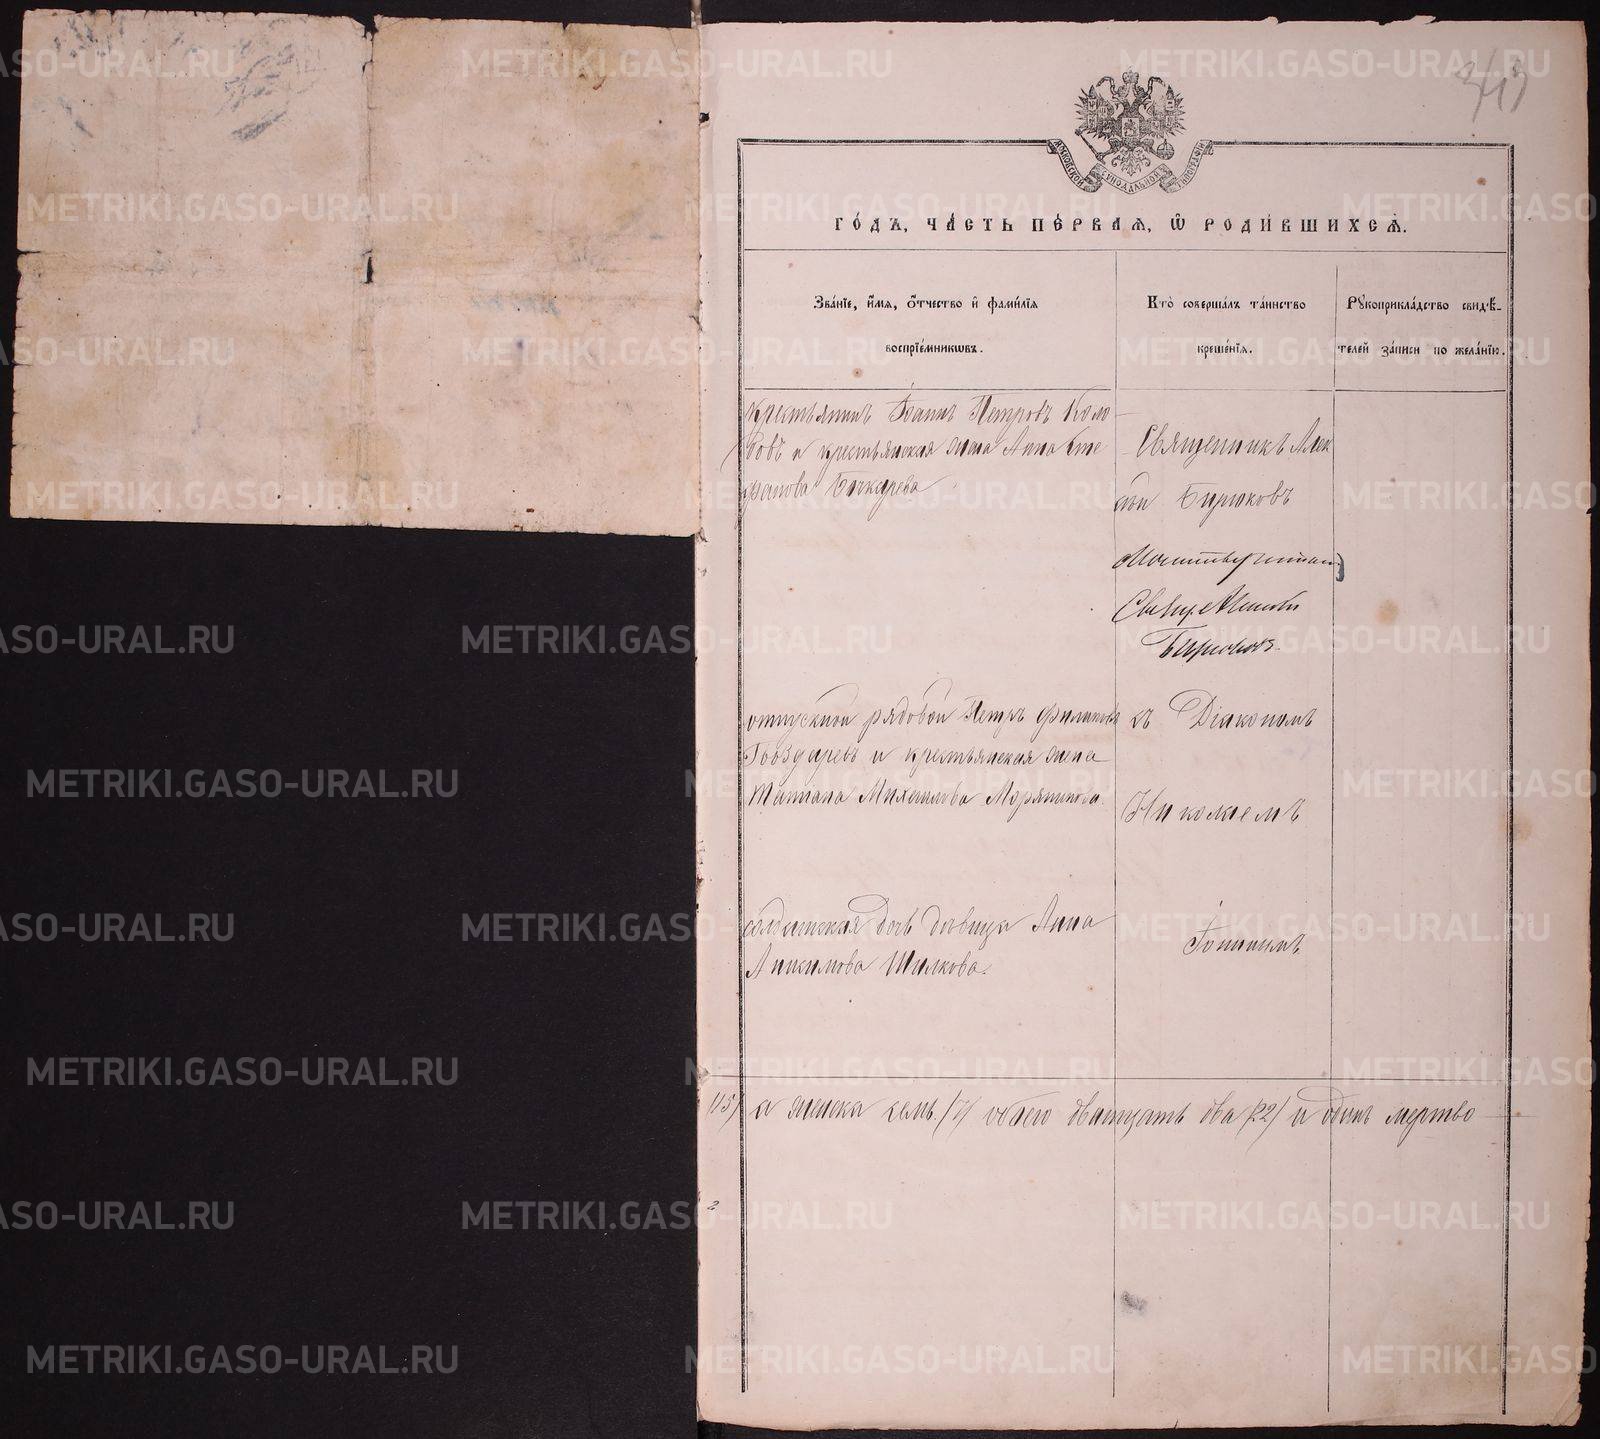 МОСКОВСКОЙ СУНОДАЛЬНОЙ ТИПОГРАФІИ
ГО́ДЪ, ЧА́СТЬ ПЕ́РВАѦ, Ѡ҆ РОДИ́ВШИХСѦ.
Зва́нїе, и҆́мѧ, о҆́тчество и҆ фами́лїѧ
воспрїе́мникѡвъ.
Кто̀ соверша́лъ та́инство
креще́нїѧ.
Рꙋкоприкла́дство свидѣ́-
телей за́писи по жела́нїю.
крестьянинъ Іоаннъ Петровъ Коло
бовъ и крестьянская жена Анна Сте
фанова Бочкарева
Священникъ Алек
сѣй Бирюковъ
Свящ. Алексѣй
Бирюковъ.
отпускной рядовой Петръ Филиповъ
Гвоздаревъ и крестьянская жена
Татіана Михаилова
съ Діакономъ
Николаемъ
солдатская дочь дѣвица Анна
Анисимова Шилкова.
15) а женска семь (7) обоего дватцать два (22) и одинъ мертво
2
METRIKI.GASO-URAL.RU